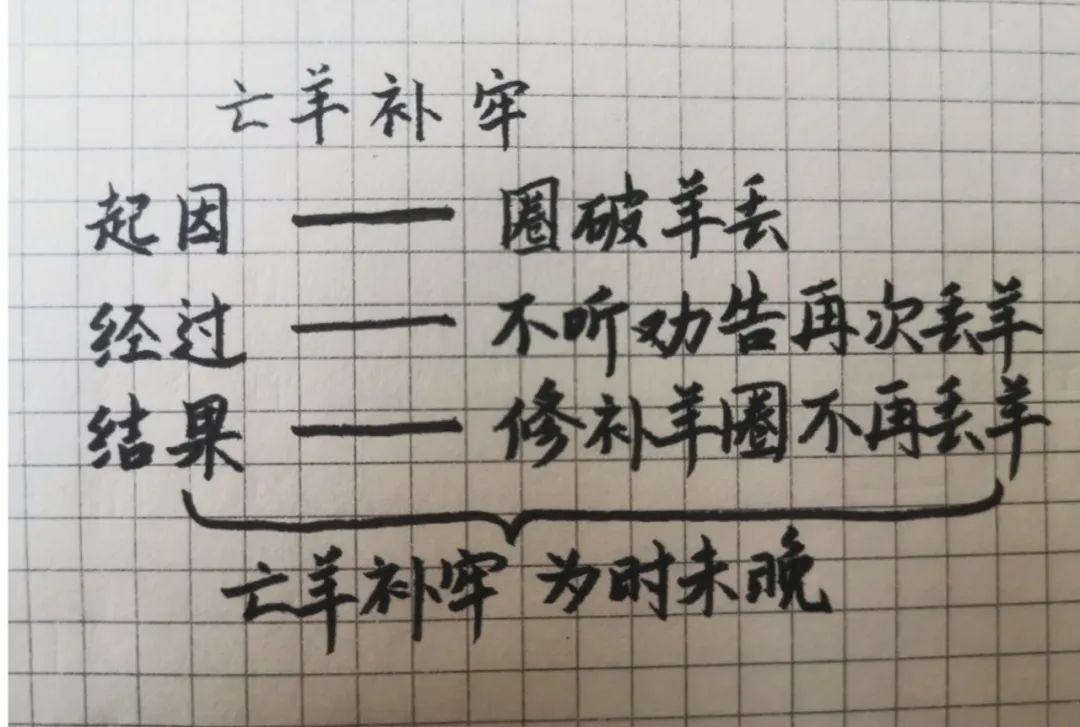 亡羊补牢
起因 —— 圈破羊丢
经过 —— 不听劝告再次丢羊
结果 —— 修补羊圈不再丢羊
亡羊补牢 为时未晚